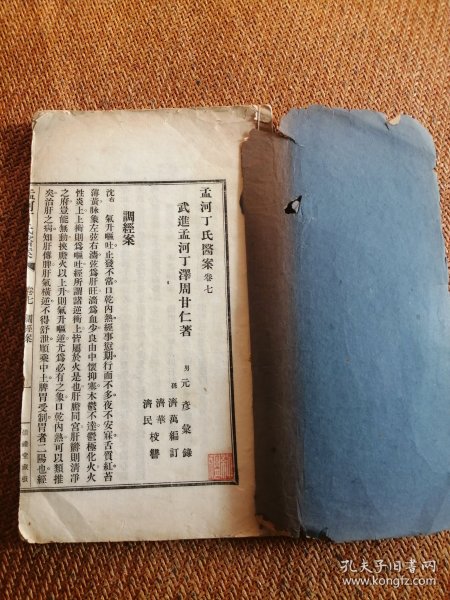 孟河丁氏醫案卷七
武進孟河丁澤周甘仁著
男元彥彙錄
孫濟萬編訂
濟華
濟民校讐
調經案
沈右 氣升嘔吐止發不常口乾內熱經事愆期行而不多夜不安寐舌質紅苔
薄黃脉象左弦右濇弦爲肝旺濇爲血少良由中懷抑塞木鬱不達鬱極化火火
性炎上上衝則爲嘔吐經所謂諸逆衝上皆屬於火是也肝膽同宮肝鬱則清淨
之府豈能無動挾膽火以上升則氣升嘔逆尤爲必有之象口乾內熱可以類推
矣治肝之病知肝傳脾肝氣橫逆不得舒泄順乘中土脾胃受制胃者二陽也經
卷七 調經案
孔夫子旧书网
www.kongfz.com